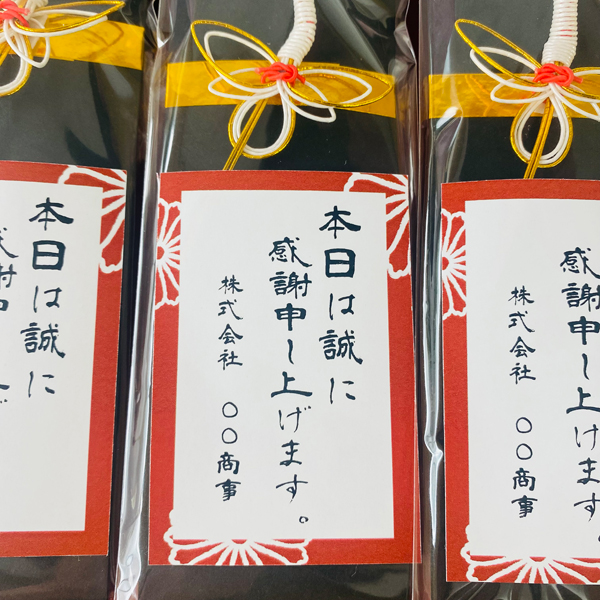 本日は誠に
感謝申し上げます。
株式会社 〇〇商事
感謝申し上げます。
株式会社 〇〇商事
本日は誠に
感謝申し上げ